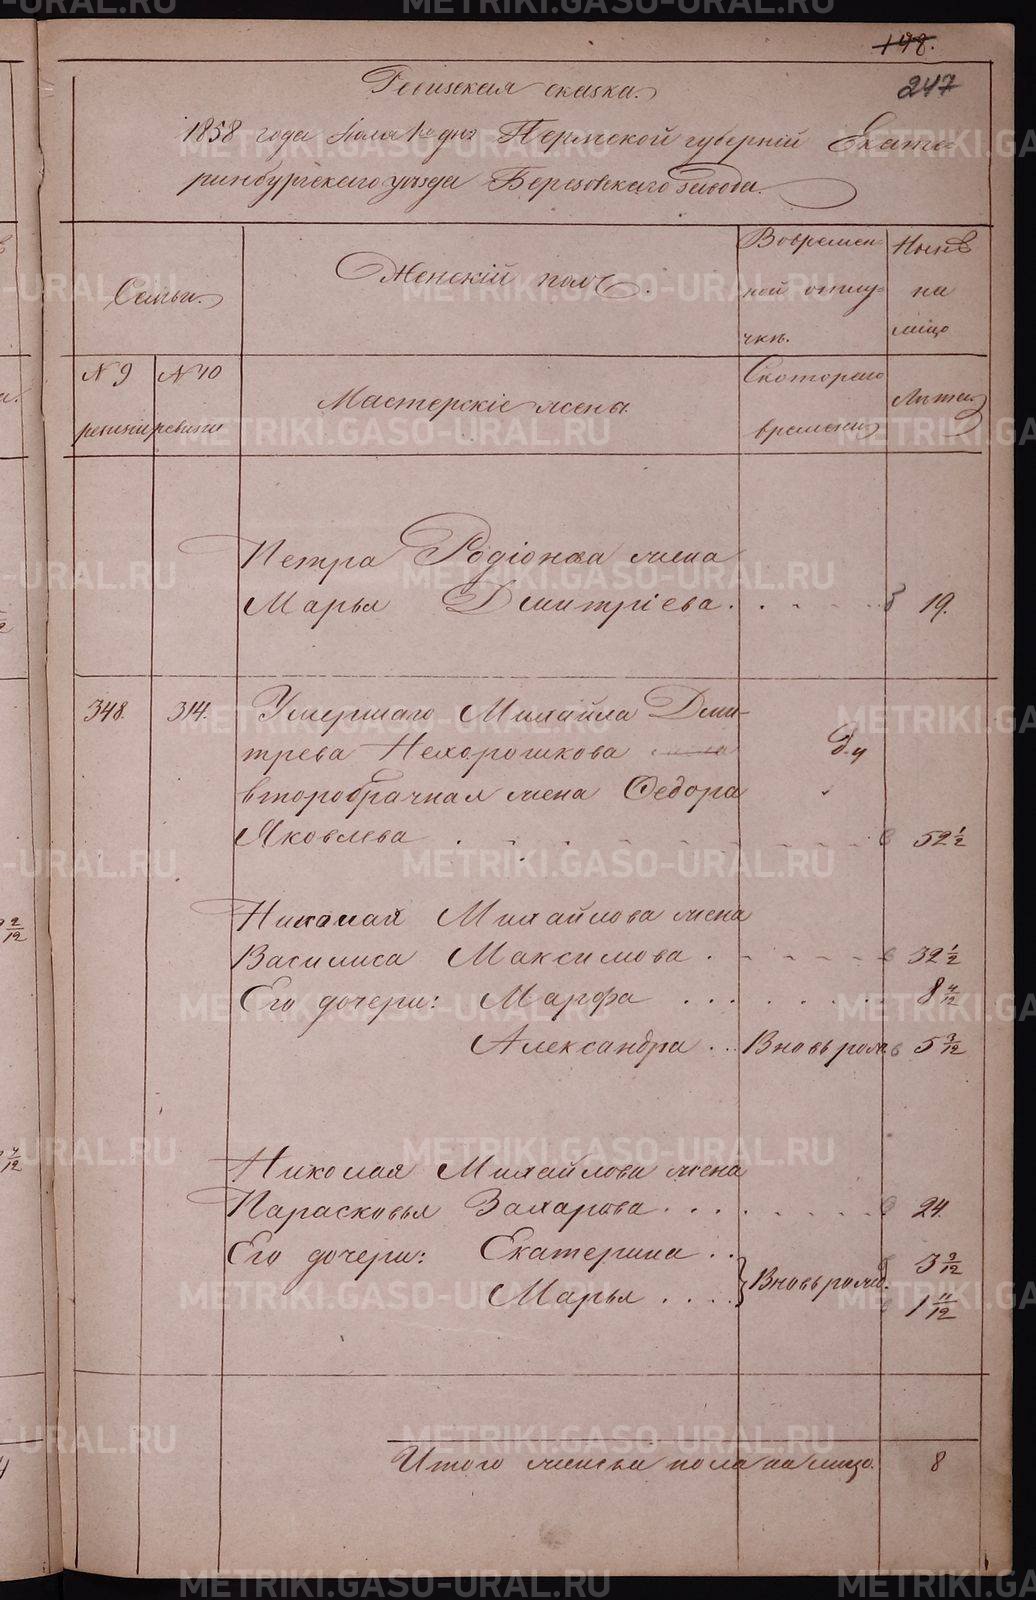 198.
247
Ревизская сказка.
1858 года Маія 1го дня Пермской губерній Екате-
ринбургскаго уѣзда Березовскаго завода.
Семьи.
Женскій полъ.
Вовремен-
ной отлу-
чкѣ.
Нынѣ
на
лицо
N 9
ревизіи
N 10
ревизіи
Мастерскіе жены.
Скотораго
времени
Лѣта
Петра Родіонова жена
Марья Дмитріева . . . . . . 19.
348. 314. Умершаго Михайла Дми-
трева Нехорошкова
второбрачная жена Федора
Яковлева . . . . . . . 52 1/2
Николая Михайлова жена
Василиса Максимова . . . . . 32 1/2
Его дочери: Марфа . . . . . . . 8 4/12
Александра . . Вновь рожд 5 3/12
Николая Михайлова жена
Парасковья Захарова . . . . . . . 24.
Его дочери: Екатерина . . 3 9/12
Марья . . . . Вновь рожд. 1 11/12
Итого женска пола на лицо. 8
METRIKI.GASO-URAL.RU